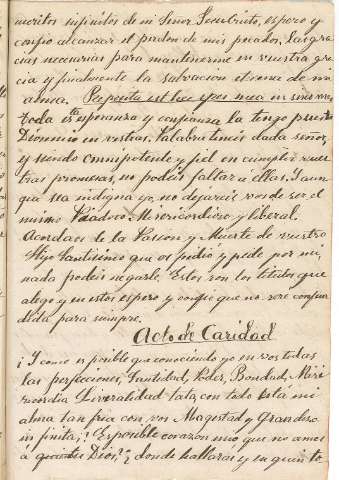 meritos infinitos de mi Señor Jesucristo, espero y
confio alcanzar el perdon de mis pecados, las gra
cias necesarias para mantenerme en vuestra gra
cia y finalmente la salvacion eterna de mi
alma. Reposita est hec spes mea in sinu meo
toda esta esperanza y confianza la tengo puesta
Dios mio en vos. Palabra teneis dada señor,
y siendo Omnipotente y fiel en cumplir vues
tras promesas, no podeis faltar a ellas. Y aun
que sea indigna yo, no dejareis vos de ser el
mismo Misericordioso y liberal.
Acordaos de la Pasion y Muerte de vuestro
Hijo Santisimo que os pidió y pide por mi,
nada podeis negarle. Estos son los titulos que
alego y en estos espero y confio que no sere confun
dida para siempre.
Acto de Caridad
¿Y como es posible que conociendo yo en vos todas
las perfecciones, Santidad, Poder, Bondad, Miseri
cordia Liberalidad con todo está mi
alma tan fria con vos Magestad y Grandeza
infinita? ¿Es posible corazon mio que no ames
á Dios? ¿donde hallaras y su